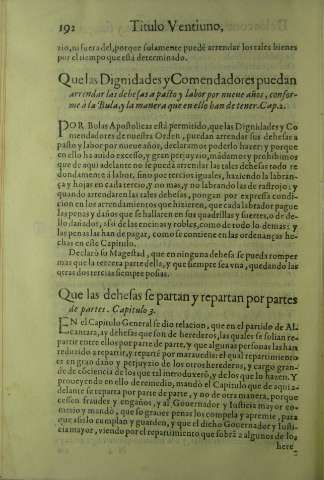 192 Titulo Ventiuno,
zio, ni fuera del, porque solamente puede arrendar los tales bienes
por el tiempo que està determinado.
Que las Dignidades y Comendadores puedan
arrendar las dehesas a pasto y labor por nueue años, confor-
me à la Bula, y la manera que en ello han de tener. Cap. 2.
POR Bulas Apostolicas està permitido, que las Dignidades y Co
mendadores de nuestra Orden, puedan arrendar sus dehesas a
pasto y labor por nueue años, declaramos poderlo hazer: y porque
en ello ha auido excesso, y gran perjuyzio, mãdamos y prohibimos
que de aqui adelante no se pueda arrendar las tales dehesas todo re
dondamente à labor, sino por tercios iguales, haziendo la labran-
ça y hojas en cada tercio, y no mas, y no labrando las de rastrojo: y
quando arrendaren las tales dehesas, pongan por expressa condi-
cion en los arrendamientos que hizieren, que cada labrador pague
las penas y daños que se hallaren en sus quadrillas y suertes, o de-
llo dañador, assi de las encinas y robles, como de todo lo demas: y
las penas las han de pagar, como se contiene en las ordenanças he-
chas en este Capitulo.
Declarò su Magestad, que en ninguna dehesa se pueda romper
mas que la tercera parte della, y que siempre sea vna, quedando las
otras dos tercias siempre posias.
Que las dehesas se partan y repartan por partes
de parte. Capitulo 3.
EN el Capitulo General se dio relacion, que en el partido de Al
cantara, ay dehesas que son de herederos, las quales se solian re-
partir entre ellos por parte de parte, y que algunas personas las han
reduzido a repartir, y reparte por marauedis: el qual repartimiento
es en gran daño y perjuyzio de los otros herederos, y cargo gran-
de de cõciencia de los que tal merodueerõ, y de los que lo hazen. Y
proueyendo en ello de remedio, mandò el Capitulo que de aqui a-
delante se reparta por parte de parte, y no de otra manera, porque
cessen fraudes y engaños, y al Gouernador y Iusticia mayor co-
metio y mandò, que so graues penas los compela y apremie, para
que assi lo cumplan y guarden, y que el dicho Gouernador y Iusti-
cia mayor, viendo por el repartimiento que sobra a algunos de los
here